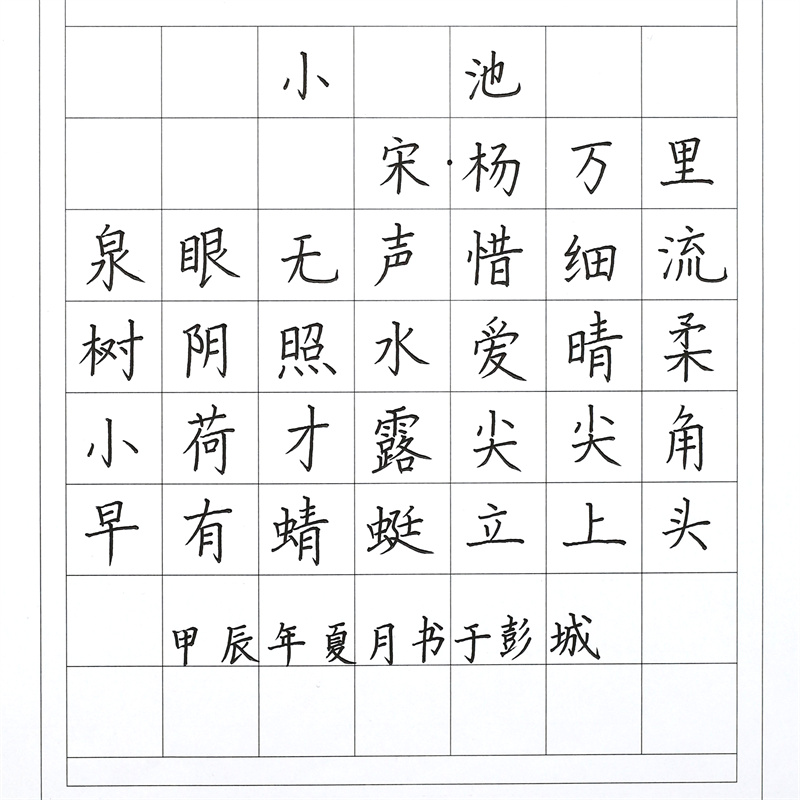 小池
宋·杨万里
泉眼无声惜细流
树阴照水爱晴柔
小荷才露尖尖角
早有蜻蜓立上头
甲辰年夏月书于彭城